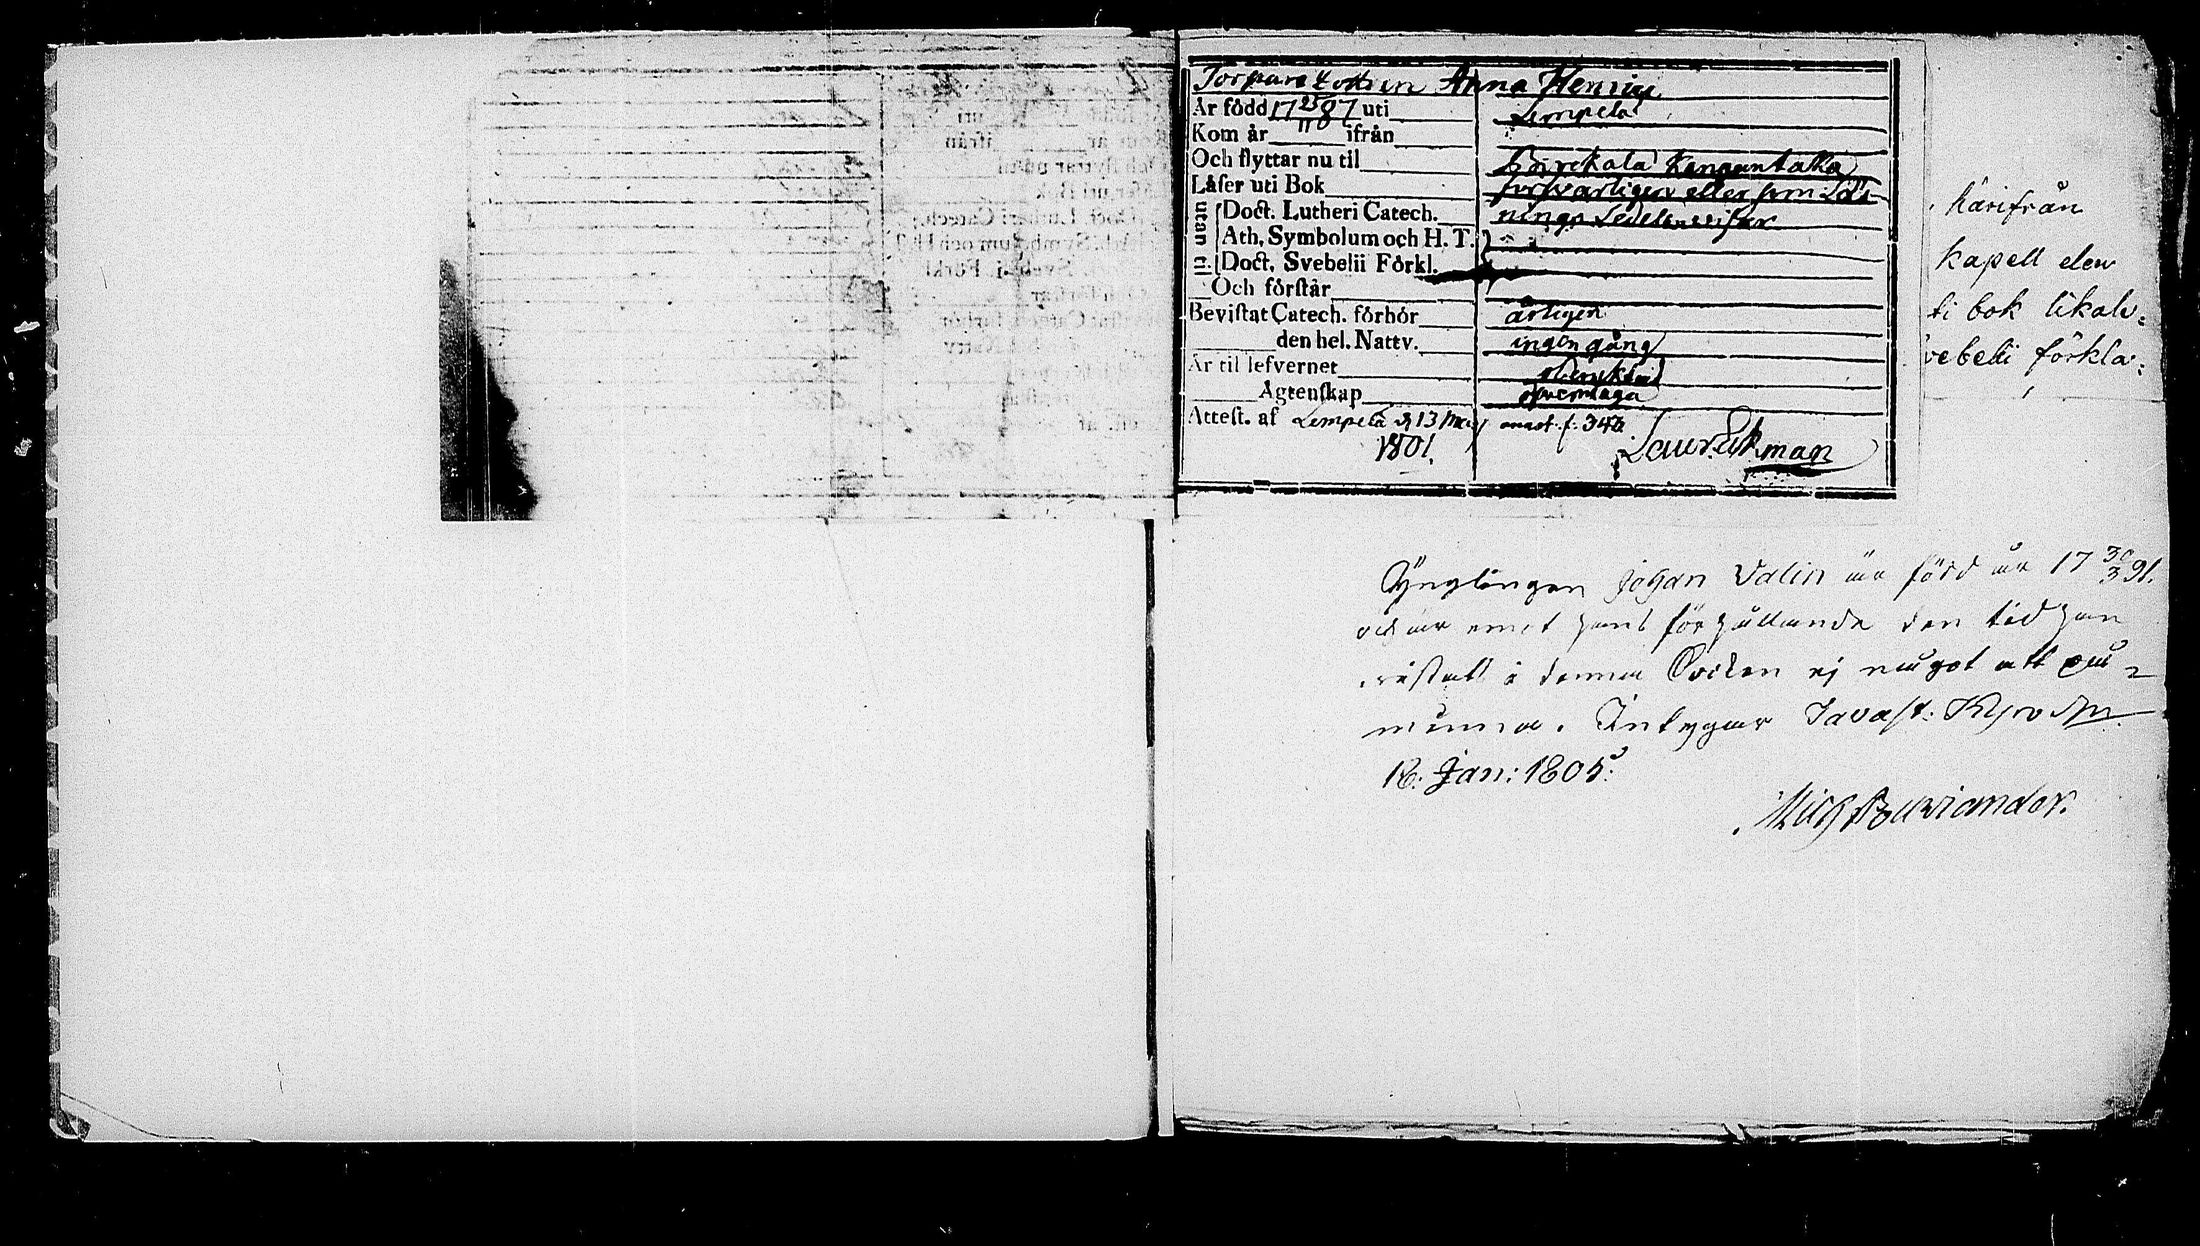 Torpare dottren Anna Henric
År född 17 25/11 87 uti Lempela
Kom år ifrån
Och flyttar nu til Birckala Kangantaka
Läser uti Bok försvarligen eller som Läs-
utan til Doct. Lutheri Catech. nings Sedelen visar
Ath. Symbolum och H. T.
Doct. Svebelii Förkl.
Och förstår
Bevistat Catech. förhör årligen
den hel. Nattv. ingen gång
Är til lefvernet
Ägtenskap
Attest. af Lempela d 13 Maij 1801. f. 346
Laur. Ekman
härifrån
kapell elev
ti bok likale=
vebelii förkla=
Ynglingen Johan Valin är född år 17 30/3 91.
och är emot hans förhållande den tid han
vistats i denna Orten ej något att på=
minna. Intygar Tavast: Kyro den
18. Jan: 1805.
Mich Baviander.